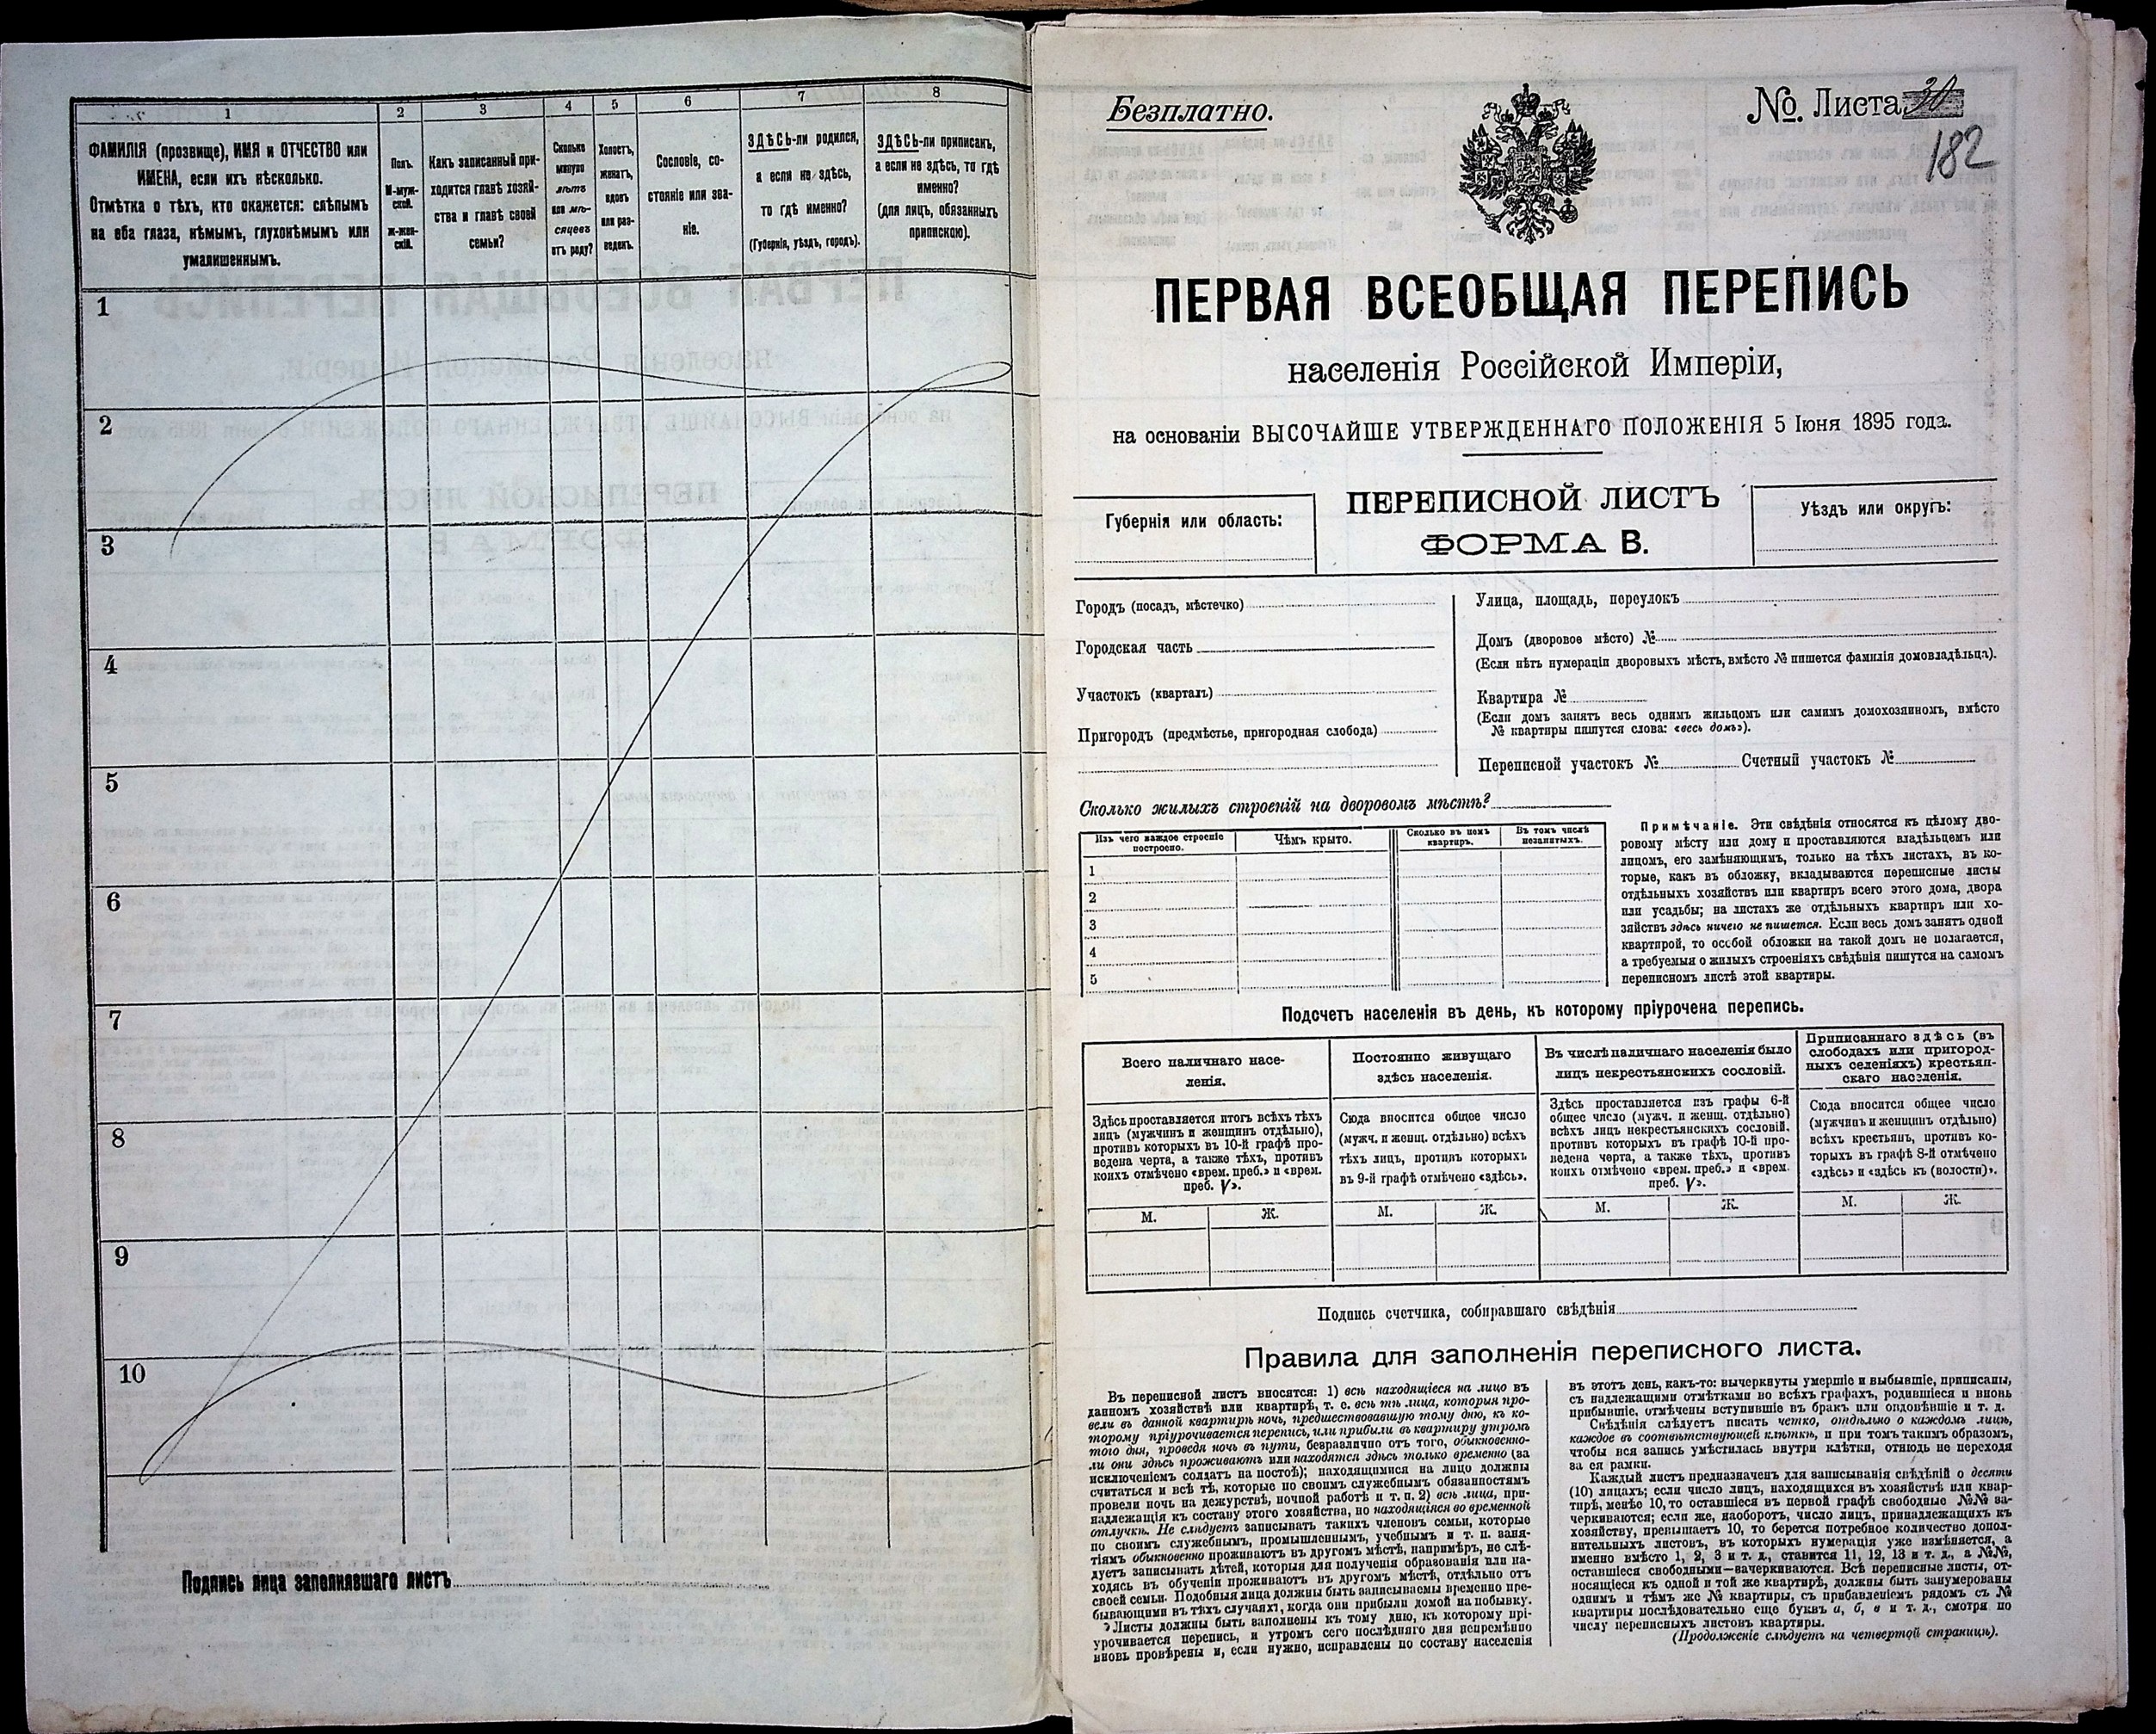 1
2
3
4
5
6
7
8
ФАМИЛІЯ (прозвище), ИМЯ и ОТЧЕСТВО или
ИМЕНА, если ихъ нѣсколько.
Отмѣтка о тѣхъ, кто окажется: слѣпымъ
на оба глаза, нѣмымъ, глухонѣмымъ или
умалишеннымъ.
Полъ.
М-муж-
ской.
ж-жен-
скій.
Какъ записанный при-
ходится главѣ хозяй-
ства и главѣ своей
семьи?
Сколько
минуло
лѣтъ
или мѣ-
сяцевъ
отъ роду?
Холостъ,
женатъ,
вдовъ
или раз-
веденъ.
Сословіе, со-
стояніе или зва-
ніе.
ЗДѢСЬ-ли родился,
а если не здѣсь,
то гдѣ именно?
(Губернія, уѣздъ, городъ).
ЗДѢСЬ-ли приписанъ,
а если не здѣсь, то гдѣ
именно?
(для лицъ, обязанныхъ
припискою).
1
2
3
4
5
6
7
8
9
10
Подпись лица заполнявшаго листъ
Безплатно.
№. Листа 30
182
ПЕРВАЯ ВСЕОБЩАЯ ПЕРЕПИСЬ
населенія Россійской Имперіи,
на основаніи ВЫСОЧАЙШЕ УТВЕРЖДЕННАГО ПОЛОЖЕНІЯ 5 Іюня 1895 года.
Губернія или область:
ПЕРЕПИСНОЙ ЛИСТЪ
ФОРМА В.
Уѣздъ или округъ:
Городъ (посадъ, мѣстечко)
Городская часть
Участокъ (кварталъ)
Пригородъ (предмѣстье, пригородная слобода)
Улица, площадь, переулокъ
Домъ (дворовое мѣсто) №
(Если нѣтъ нумераціи дворовыхъ мѣстъ, вмѣсто № пишется фамилія домовладѣльца).
Квартира №
(Если домъ занятъ весь однимъ жильцомъ или самимъ домохозяиномъ, вмѣсто
№ квартиры пишутся слова: «весь домъ»).
Переписной участокъ № Счетный участокъ №
Сколько жилыхъ строеній на дворовомъ мѣстѣ?
Изъ чего каждое строеніе
построено.
Чѣмъ крыто.
Сколько въ немъ
квартиръ.
Въ томъ числѣ
незанятыхъ.
1
2
3
4
5
Примѣчаніе. Эти свѣдѣнія относятся къ цѣлому дво-
ровому мѣсту или дому и проставляются владѣльцемъ или
лицомъ, его замѣняющимъ, только на тѣхъ листахъ, въ ко-
торые, какъ въ обложку, вкладываются переписные листы
отдѣльныхъ хозяйствъ или квартиръ всего этого дома, двора
или усадьбы; на листахъ же отдѣльныхъ квартиръ или хо-
зяйствъ здѣсь ничего не пишется. Если весь домъ занятъ одной
квартирой, то особой обложки на такой домъ не полагается,
а требуемыя о жилыхъ строеніяхъ свѣдѣнія пишутся на самомъ
переписномъ листѣ этой квартиры.
Подсчетъ населенія въ день, къ которому пріурочена перепись.
Всего наличнаго насе-
ленія.
Постоянно живущаго
здѣсь населенія.
Въ числѣ наличнаго населенія было
лицъ некрестьянскихъ сословій.
Приписаннаго здѣсь (въ
слободахъ или пригород-
ныхъ селеніяхъ) крестьян-
скаго населенія.
Здѣсь проставляется итогъ всѣхъ тѣхъ
лицъ (мужчинъ и женщинъ отдѣльно),
противъ которыхъ въ 10-й графѣ про-
ведена черта, а также тѣхъ, противъ
коихъ отмѣчено «врем. преб.» и «врем.
преб. V».
Сюда вносится общее число
(мужч. и женщ. отдѣльно) всѣхъ
тѣхъ лицъ, противъ которыхъ
въ 9-й графѣ отмѣчено «здѣсь».
Здѣсь проставляется изъ графы 6-й
общее число (мужч. и женщ. отдѣльно)
всѣхъ лицъ некрестьянскихъ сословій,
противъ которыхъ въ графѣ 10-й про-
ведена черта, а также тѣхъ, противъ
коихъ отмѣчено «врем. преб.» и «врем.
преб. V».
Сюда вносится общее число
(мужчинъ и женщинъ отдѣльно)
всѣхъ крестьянъ, противъ ко-
торыхъ въ графѣ 8-й отмѣчено
«здѣсь» и «здѣсь къ (волости)».
М. Ж. М. Ж. М. Ж. М. Ж.
Подпись счетчика, собиравшаго свѣдѣнія
Правила для заполненія переписного листа.
Въ переписной листъ вносятся: 1) всѣ находящіеся на лицо въ
данномъ хозяйствѣ или квартирѣ, т. е. всѣ тѣ лица, которыя про-
вели въ данной квартирѣ ночь, предшествовавшую тому дню, къ ко-
торому пріурочивается перепись, или прибыли въ квартиру утромъ
того дня, проведя ночь въ пути, безразлично отъ того, обыкновенно-
ли они здѣсь проживаютъ или находятся здѣсь только временно (за
исключеніемъ солдатъ на постоѣ); находящимися на лицо должны
считаться и всѣ тѣ, которые по своимъ служебнымъ обязанностямъ
провели ночь на дежурствѣ, ночной работѣ и т. п. 2) всѣ лица, при-
надлежащія къ составу этого хозяйства, но находящіяся во временной
отлучкѣ. Не слѣдуетъ записывать такихъ членовъ семьи, которые
по своимъ служебнымъ, промышленнымъ, учебнымъ и т. п. заня-
тіямъ обыкновенно проживаютъ въ другомъ мѣстѣ, напримѣръ, не слѣ-
дуетъ записывать дѣтей, которыя для полученія образованія или на-
ходясь въ обученіи проживаютъ въ другомъ мѣстѣ, отдѣльно отъ
своей семьи. Подобныя лица должны быть записываемы временно пре-
бывающими въ тѣхъ случаяхъ, когда они прибыли домой на побывку.
Листы должны быть заполнены къ тому дню, къ которому прі-
урочивается перепись, и утромъ сего послѣдняго дня непремѣнно
вновь провѣрены и, если нужно, исправлены по составу населенія
въ этотъ день, какъ-то: вычеркнуты умершіе и выбывшіе, приписаны,
съ надлежащими отмѣтками во всѣхъ графахъ, родившіеся и вновь
прибывшіе, отмѣчены вступившіе въ бракъ или овдовѣвшіе и т. д.
Свѣдѣнія слѣдуетъ писать четко, отдѣльно о каждомъ лицѣ,
каждое въ соотвѣтствующей клѣткѣ, и при томъ такимъ образомъ,
чтобы вся запись умѣстилась внутри клѣтки, отнюдь не переходя
за ея рамки.
Каждый листъ предназначенъ для записыванія свѣдѣній о десяти
(10) лицахъ; если число лицъ, находящихся въ хозяйствѣ или квар-
тирѣ, менѣе 10, то оставшіеся въ первой графѣ свободные №№ за-
черкиваются; если же, наоборотъ, число лицъ, принадлежащихъ къ
хозяйству, превышаетъ 10, то берется потребное количество допол-
нительныхъ листовъ, въ которыхъ нумерація уже измѣняется, а
именно вмѣсто 1, 2, 3 и т. д., ставится 11, 12, 13 и т. д., а №№,
оставшіеся свободными—зачеркиваются. Всѣ переписные листы, от-
носящіеся къ одной и той же квартирѣ, должны быть занумерованы
однимъ и тѣмъ же № квартиры, съ прибавленіемъ рядомъ съ №
квартиры послѣдовательно еще буквъ а, б, в и т. д., смотря по
числу переписныхъ листовъ квартиры.
(Продолженіе слѣдуетъ на четвертой страницѣ).